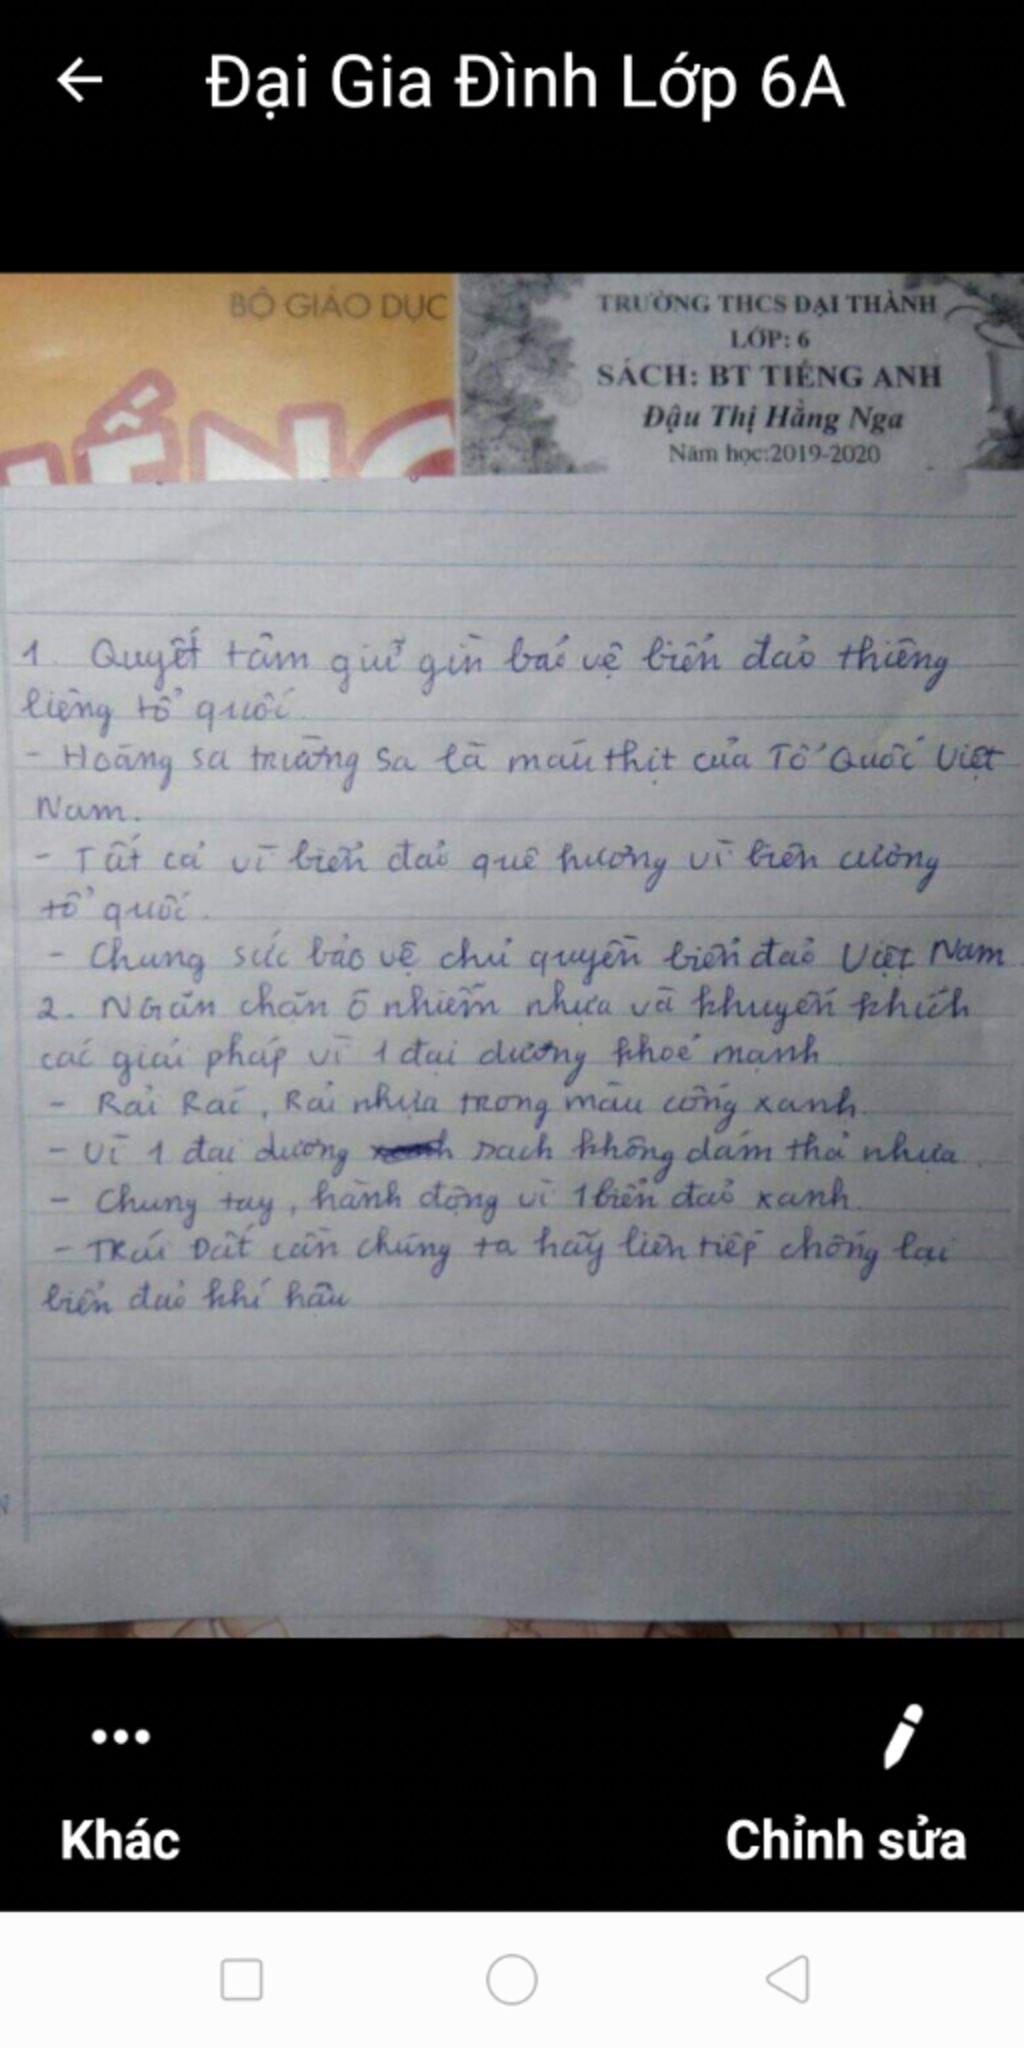 Đại Gia Đình Lớp 6A
BỘ GIÁO DỤC
TRƯỜNG THCS ĐẠI THÀNH
LỚP: 6
SÁCH: BT TIẾNG ANH
Đậu Thị Hằng Nga
Năm học:2019-2020
1. Quyết tâm giữ gìn bảo vệ biển đảo thiêng
liêng tổ quốc
- Hoàng sa trường Sa là máu thịt của Tổ Quốc Việt
Nam.
- Tất cả vì biển đảo quê hương vì biên cường
tổ quốc.
- Chung sức bảo vệ chủ quyền biển đảo Việt Nam
2. Ngăn chặn ô nhiễm nhựa và khuyến khích
các giải pháp vì 1 đại dương khoẻ mạnh
- Rải Rác, Rải nhựa trong màu cống xanh.
- Vì 1 đại dương sạch không dám thả nhựa.
- Chung tay, hành động vì 1 biển đảo xanh.
- TRái Đất cần chúng ta hãy liên tiếp chống lại
biển đảo khí hậu
Khác
Chỉnh sửa